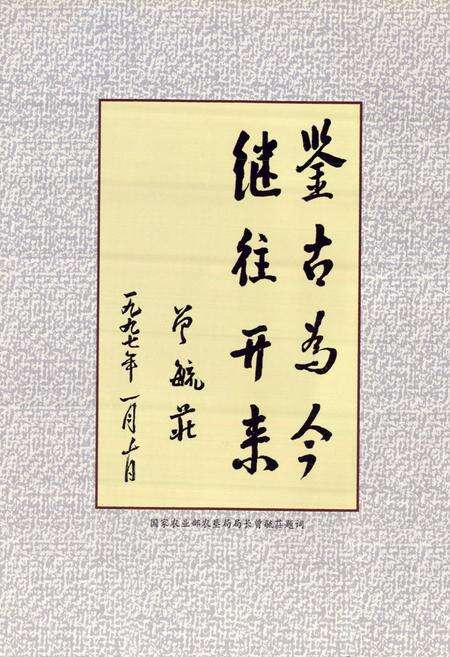 鉴古為今
继往开来
曾毓莊
一九九七年一月七日
国家农业部农垦局局长曾毓莊题词